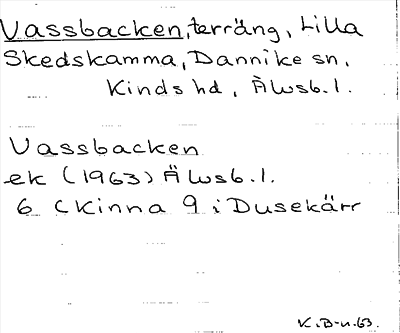 Vassbacken, terräng, Lilla
Skedskamma, Dannike sn,
Kinds hd, Älvsb. l.
Vassbacken
ek (1963) Älvsb. l.
6 C Kinna 9 i Dusekärr
K. B-n. 63.